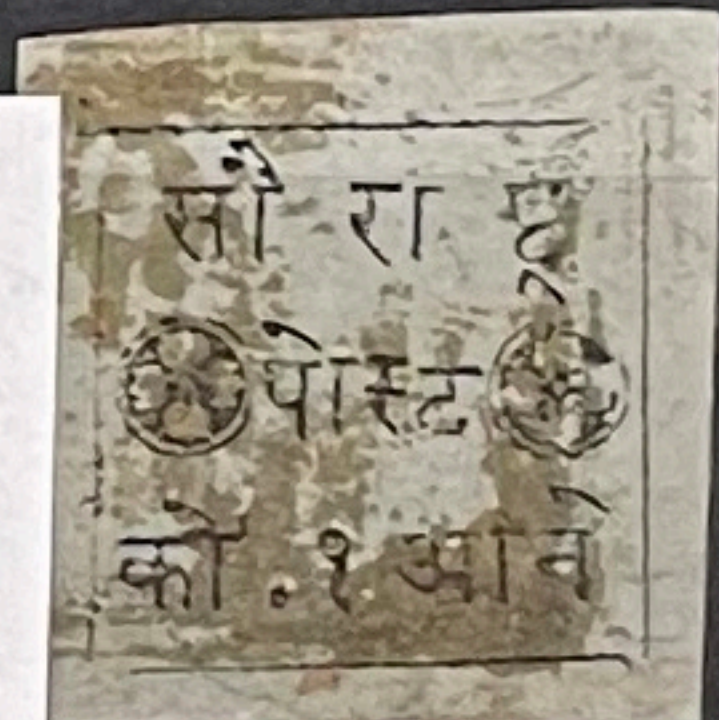 सो रा ष्ट्र
पोस्ट
को .१ आने